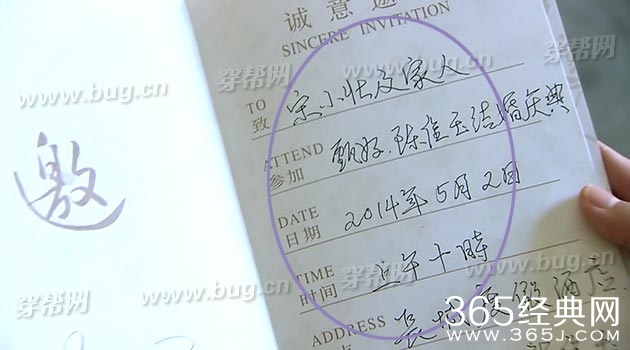 诚意邀
SINCERE INVITATION
邀
TO
致 宋小壮及家人
ATTEND
参加 甄好、陈佳玉结婚庆典
DATE
日期 2014年5月2日
TIME
时间 上午十時
ADDRESS 长城度假酒店
穿帮网
www.bug.cn
穿帮网
www.bug.cn
穿帮网
www.bug.cn
穿帮网
www.bug.cn
365经典网
WWW.365J.COM